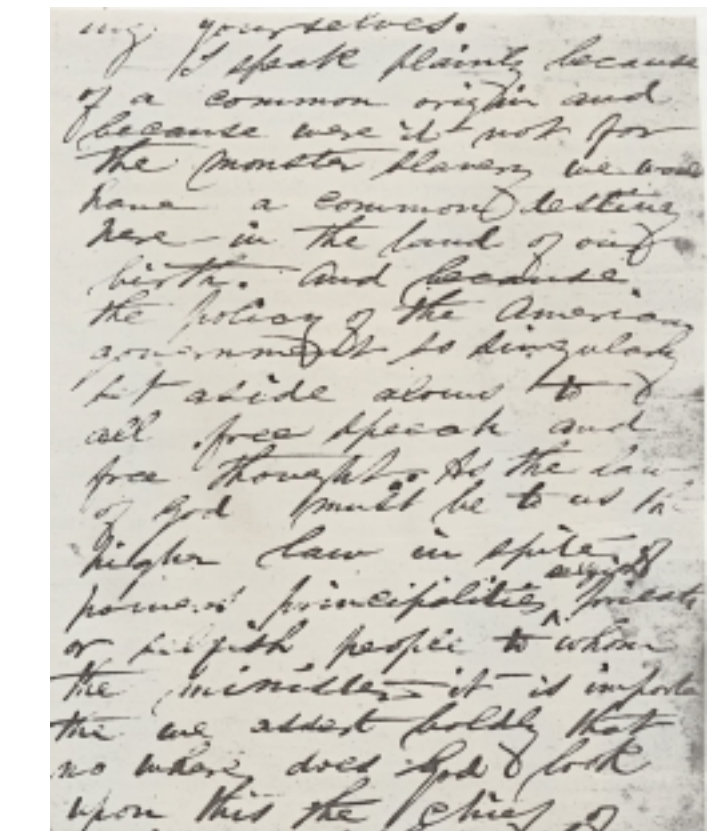 ing yourselves.
I speak plainly because
of a common origin and
because were it not for
the monster slavery we would
have a common destiny
here in the land of our
birth. And because
the policy of the American
government so singularly
set aside allows to
all free speech and
free thought. As the law
of God must be to us the
higher law in spite of
powers principalities selfish priests
or selfish people to whom
the minister it is importa
the we assert boldly that
no where does God look
upon this the chief of